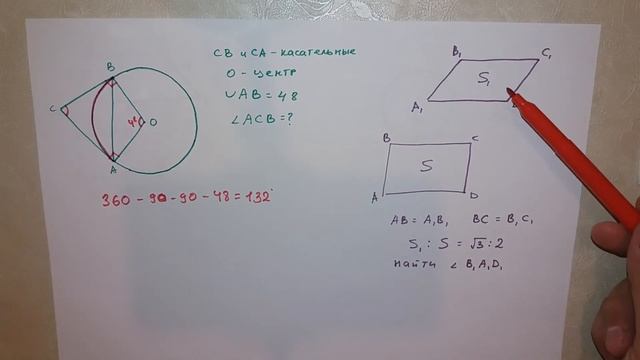 CB и CA - касательные
O - центр
∪AB = 48
∠ACB = ?
B
C
48°
O
A
360 - 90 - 90 - 48 = 132°
B₁
C₁
S₁
A₁
B
C
S
A
D
AB = A₁B₁ BC = B₁C₁
S₁ : S = √3 : 2
найти ∠ B₁A₁D₁